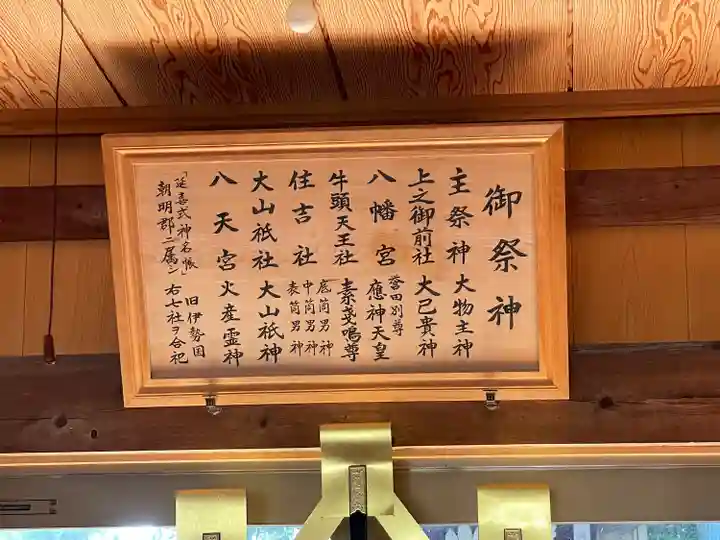 御祭神
主祭神 大物主神
上之御前社 大己貴神
八幡宮 誉田別尊 應神天皇
牛頭天王社 素戔鳴尊
住吉社 底筒男神 中筒男神 表筒男神
大山祇社 大山祇神
八天宮 火産霊神
「延喜式神名帳」旧伊勢国
朝明郡ニ属シ 右七社ヲ合祀